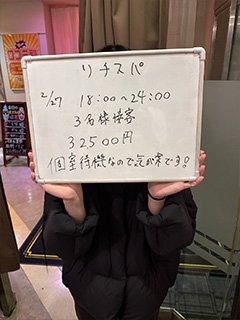 リチスパ
2/27 18:00〜24:00
3名様接客
32500円
個室待機なので気が楽です!